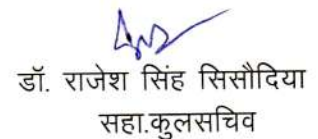 डॉ. राजेश सिंह सिसौदिया
सहा.कुलसचिव